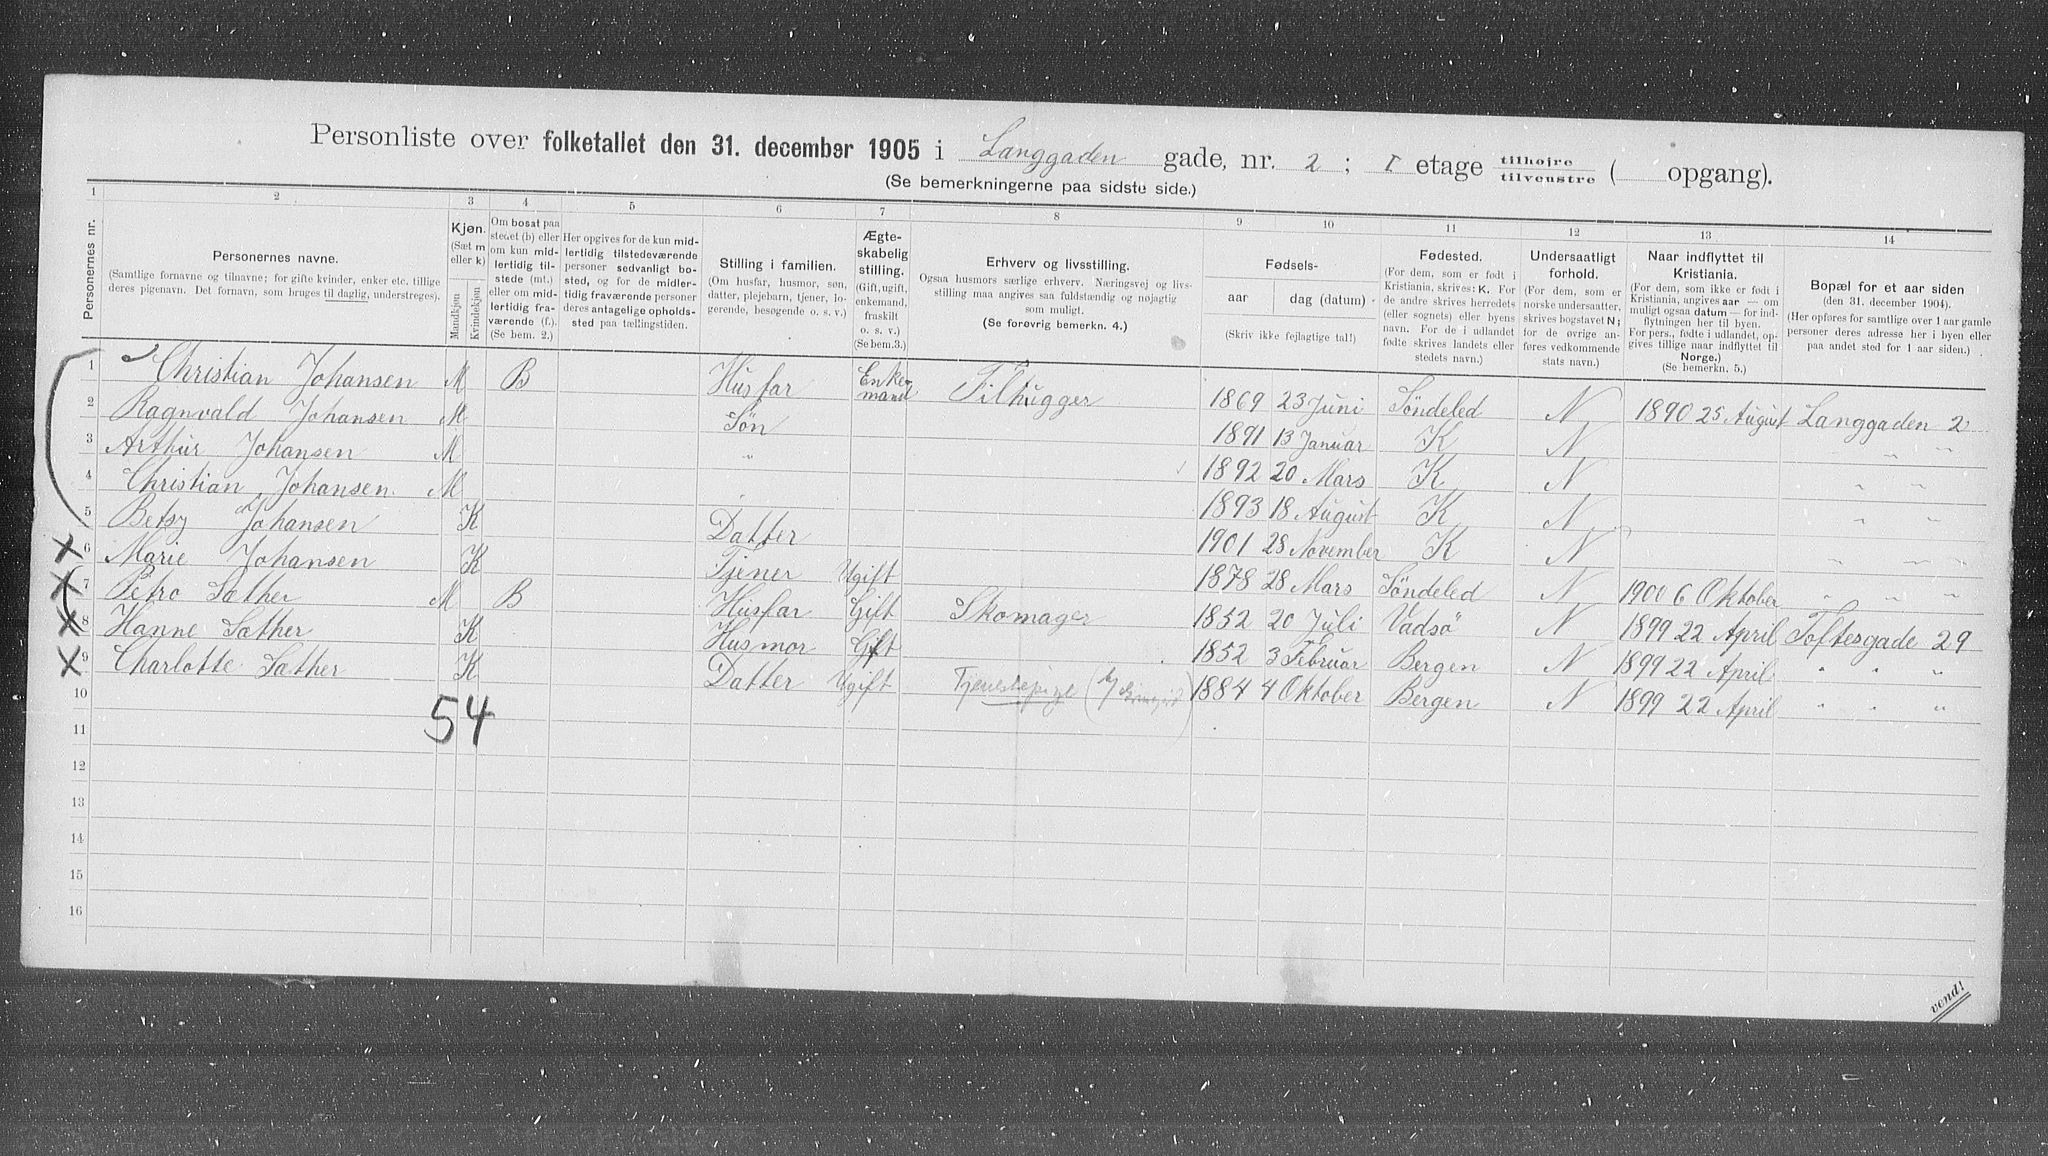 Personliste over folketallet den 31. december 1905 i Langgaden gade, nr. 2 ; I etage tilhøjre tilvenstre ( opgang).
(Se bemerkningerne paa sidste side.)
1 2 3 4 5 6 7 8 9 10 11 12 13 14
Personernes nr.
Personernes navne.
(Samtlige fornavne og tilnavne; for gifte kvinder, enker etc. tillige
deres pigenavn. Det fornavn, som bruges til daglig, understreges).
Kjøn.
(Sæt m
eller k)
Mandkjøn
Kvindekjøn
Om bosat paa
stedet (b) eller
om kun mid-
lertidig til-
stede (mt.)
eller om mid-
lertidig fra-
værende (f.).
(Se bem. 2.)
Her opgives for de kun mid-
lertidig tilstedeværende
personer sedvanligt bo-
sted, og for de midler-
tidig fraværende personer
deres antagelige opholds-
sted paa tællingstiden.
Stilling i familien.
(Om husfar, husmor, søn,
datter, plejebarn, tjener, lo-
gerende, besøgende o. s. v.)
Ægte-
skabelig
stilling.
(Gift, ugift,
enkemand,
fraskilt
o. s. v.)
(Se bem. 3.)
Erhverv og livsstilling.
Ogsaa husmors særlige erhverv. Næringsvej og livs-
stilling maa angives saa fuldstændig og nøjagtig
som muligt.
(Se forøvrig bemerkn. 4.)
Fødsels-
aar dag (datum)
(Skriv ikke fejlagtige tal!)
Fødested.
(For dem, som er født i
Kristiania, skrives: K. For
de andre skrives herredets
(eller sognets) eller byens
navn. For de i udlandet
fødte skrives landets eller
stedets navn.)
Undersaatligt
forhold.
(For dem, som er
norske undersaatter,
skrives bogstavet N;
for de øvrige an-
føres vedkommende
stats navn.)
Naar indflyttet til
Kristiania.
(For dem, som ikke er født i
Kristiania, angives aar — om
muligt ogsaa datum — for ind-
flytningen her til byen.
For pers., fødte i udlandet, op-
gives tillige naar indflyttet til
Norge.)
(Se bemerkn. 5.)
Bopæl for et aar siden
(den 31. december 1904).
(Her opføres for samtlige over 1 aar gamle
personer deres adresse her i byen eller
paa andet sted for 1 aar siden.)
1 Christian Johansen M B Husfar Enke-mand Tilhugger 1869 23 Juni Søndeled N 1890 25 August Langgaden 2
2 Ragnvald Johansen M Søn 1891 13 Januar K N " "
3 Arthur Johansen M " 1892 20 Mars K N " "
4 Christian Johansen. M " 1893 18 August K N " "
5 Betsy Johansen K Datter 1901 28 November K N " "
6 Marie Johansen K Tjener Ugift 1878 28 Mars Søndeled N 1900 6 Oktober " " "
7 Petro Sæther M B Husfar Gift Skomager 1852 20 Juli Vadsø N 1899 22 April Toftesgade 29
8 Hanne Sæther K Husmor Gift 1852 3 Februar Bergen N 1899 22 April " " "
9 Charlotte Sæther K Datter Ugift Tjenestepige 1884 4 Oktober Bergen N 1899 22 April " " "
10
54
11
12
13
14
15
16
vend!